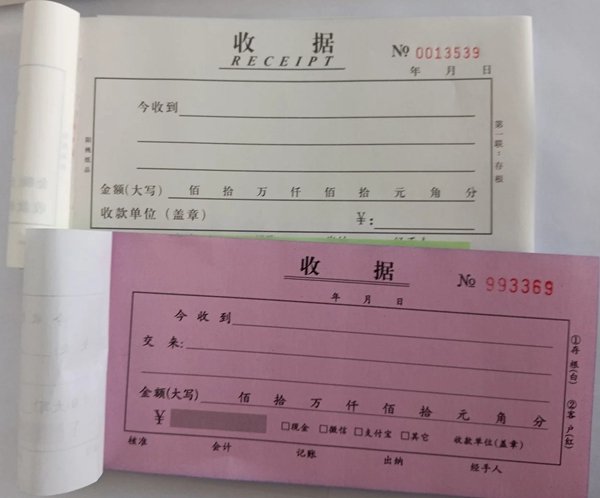 收 据
RECEIPT
№ 0013539
年 月 日
今收到
金额(大写) 佰 拾 万 仟 佰 拾 元 角 分
收款单位（盖章） ¥:
第一联：存根
收 据
№ 993369
年 月 日
今 收 到
交 来:
金额(大写) 佰 拾 万 仟 佰 拾 元 角 分
¥ □现金 □微信 □支付宝 □其它 收款单位(盖章)
核准 会计 记账 出纳 经手人
①存根(白) ②客户(红)